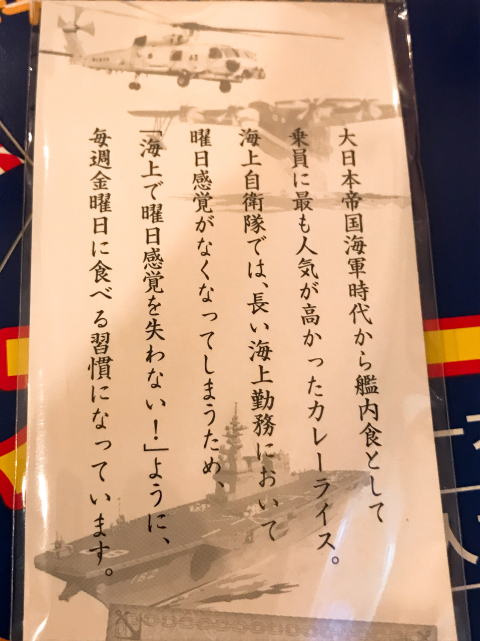 大日本帝国海軍時代から艦内食として
乗員に最も人気が高かったカレーライス。
海上自衛隊では、長い海上勤務において
曜日感覚がなくなってしまうため、
「海上で曜日感覚を失わない!」ように、
毎週金曜日に食べる習慣になっています。